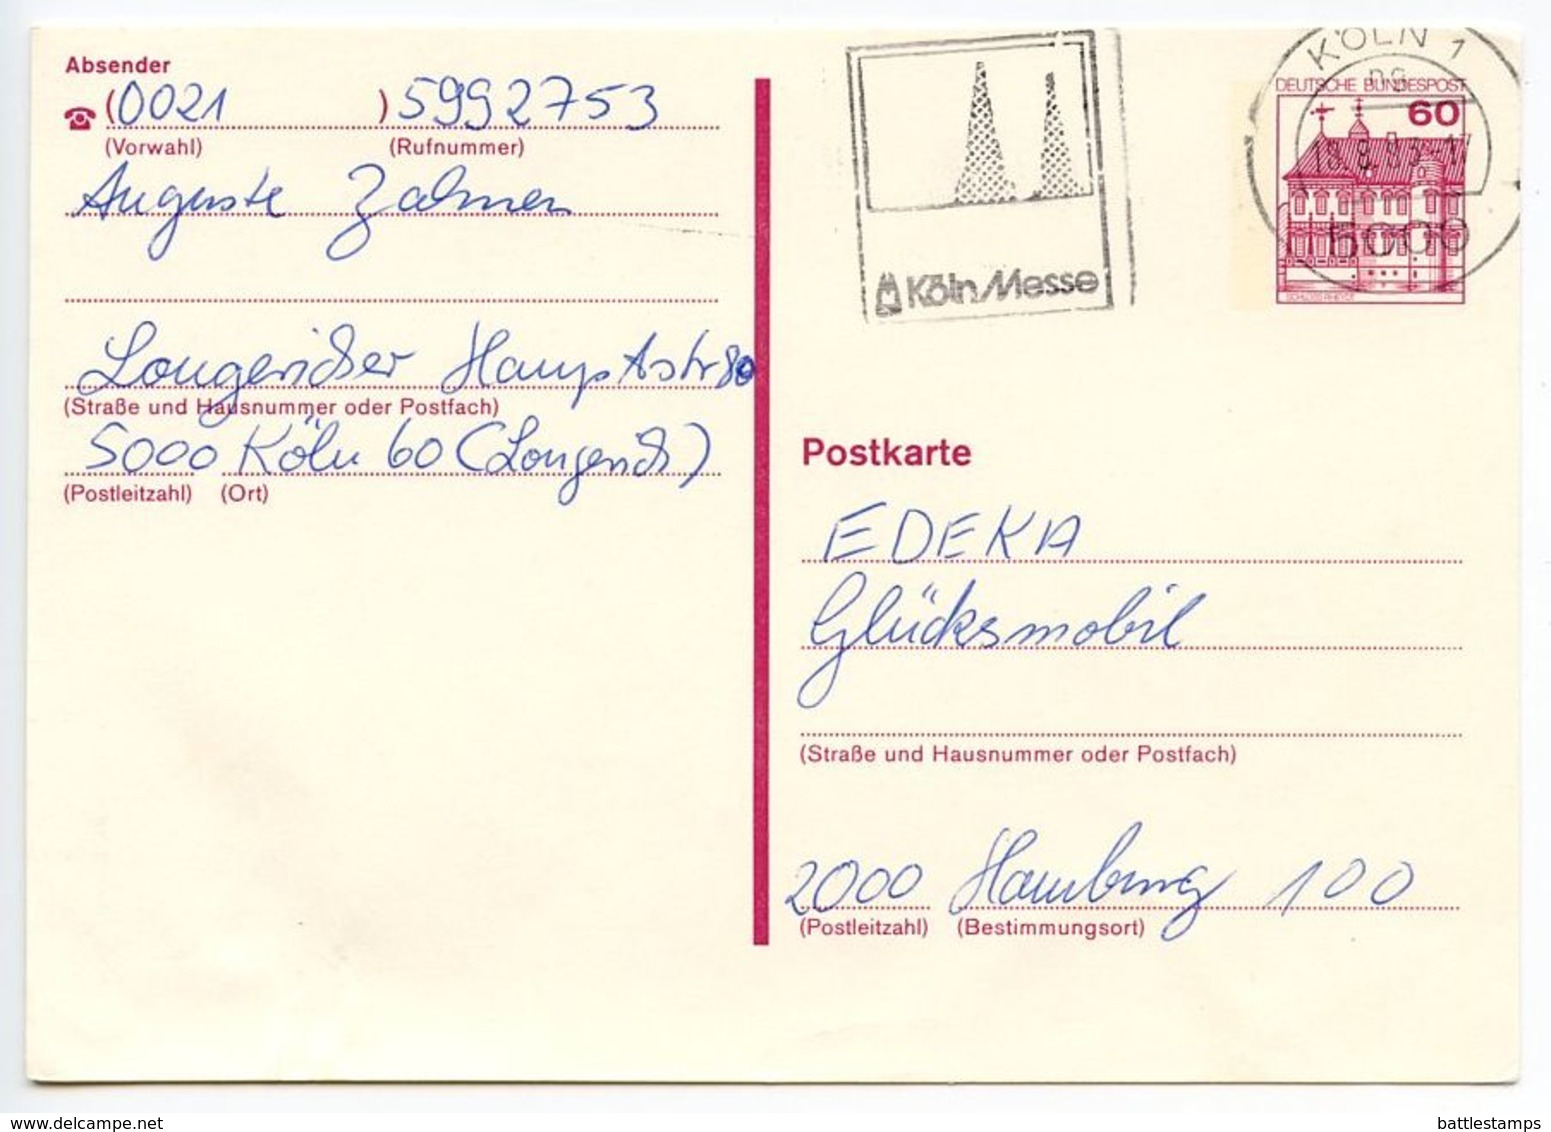 Absender
(0021 ) 5992753
(Vorwahl) (Rufnummer)
Auguste Zahnen
Longericher Hauptstr 80
(Straße und Hausnummer oder Postfach)
5000 Köln 60 (Longerich)
(Postleitzahl) (Ort)
Köln Messe
KÖLN 1
DEUTSCHE BUNDESPOST
60
5000
SCHLOSS RHEYDT
Postkarte
EDEKA
Glücksmobil
(Straße und Hausnummer oder Postfach)
2000 Hamburg 100
(Postleitzahl) (Bestimmungsort)
delcampe.net
battlestamps